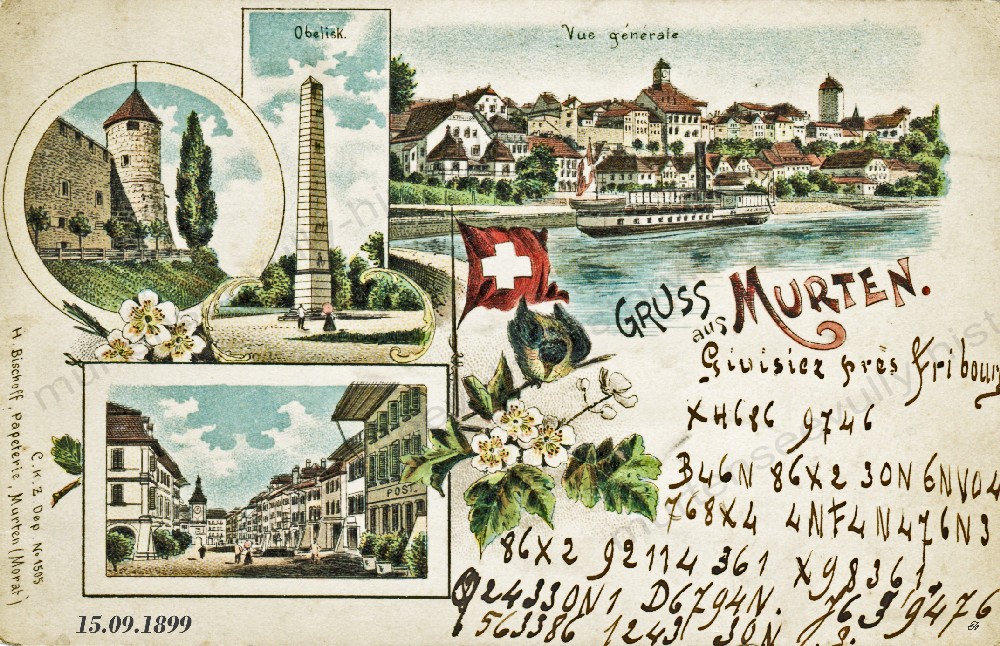 Obelisk.
Vue générale
GRUSS aus MURTEN.
Givisiez près Fribourg
XH686 9746
B46N 86X2 3ON 6NVO4
768X4 4NF4N476N3
86X2 92114 361 X98361.
Q24330N1 D6794N. J63'9476
563386 1243 3ON J.8.
POST.
H. Bischoff, Papeterie, Murten (Morat)
C. K. Z. Dep. No 1505
15.09.1899